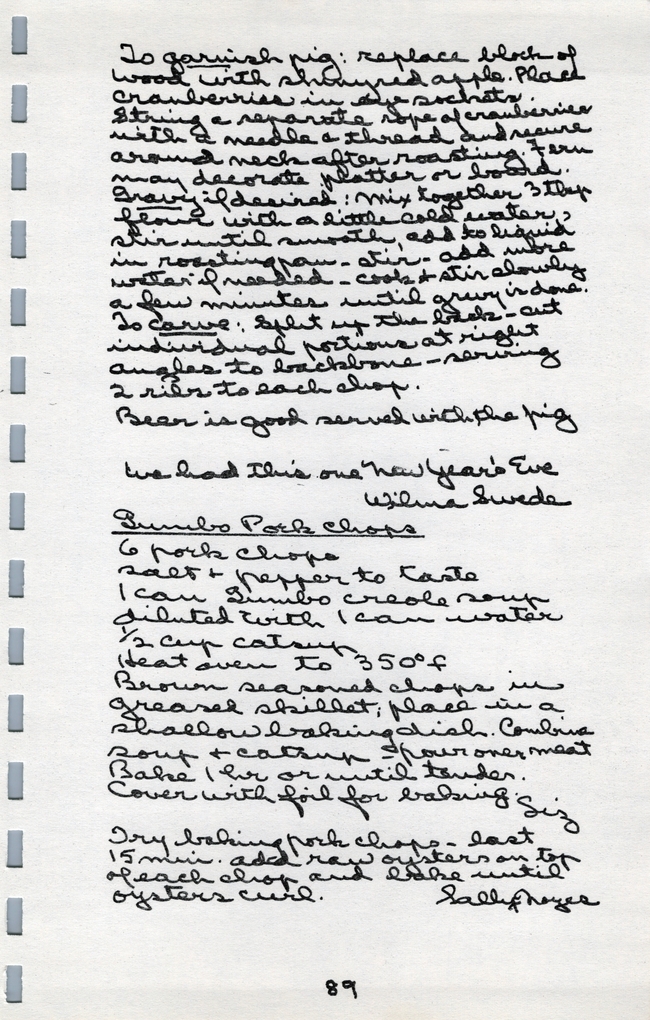 To garnish pig: replace block of
wood with shiny red apple. Place
cranberries in eye sockets.
String a separate rope of cranberries
with a needle & thread and secure
around neck after roasting. Fern
may decorate platter or board.
Gravy if desired: Mix together 3 tbsp
flour with a little cold water,
stir until smooth, add to liquid
in roasting pan - stir - add more
water if needed - cook & stir slowly
a few minutes until gravy is done.
To carve: Split up the back - cut
individual portions at right
angles to backbone - serving
2 ribs to each chop.
Beer is good served with the pig
We had this one New Year's Eve
Wilma Swede
Gumbo Pork Chops
6 pork chops
salt + pepper to taste
1 can Gumbo creole soup
diluted with 1 can water
1/2 cup catsup
Heat oven to 350°f
Brown seasoned chops in
greased skillet; place in a
shallow baking dish. Combine
soup + catsup - pour over meat
Bake 1 hr or until tender.
Cover with foil for baking.
Siz
Try baking pork chops - last
15 min. add raw oysters on top
of each chop and bake until
oysters curl.
Sally Noyes
89